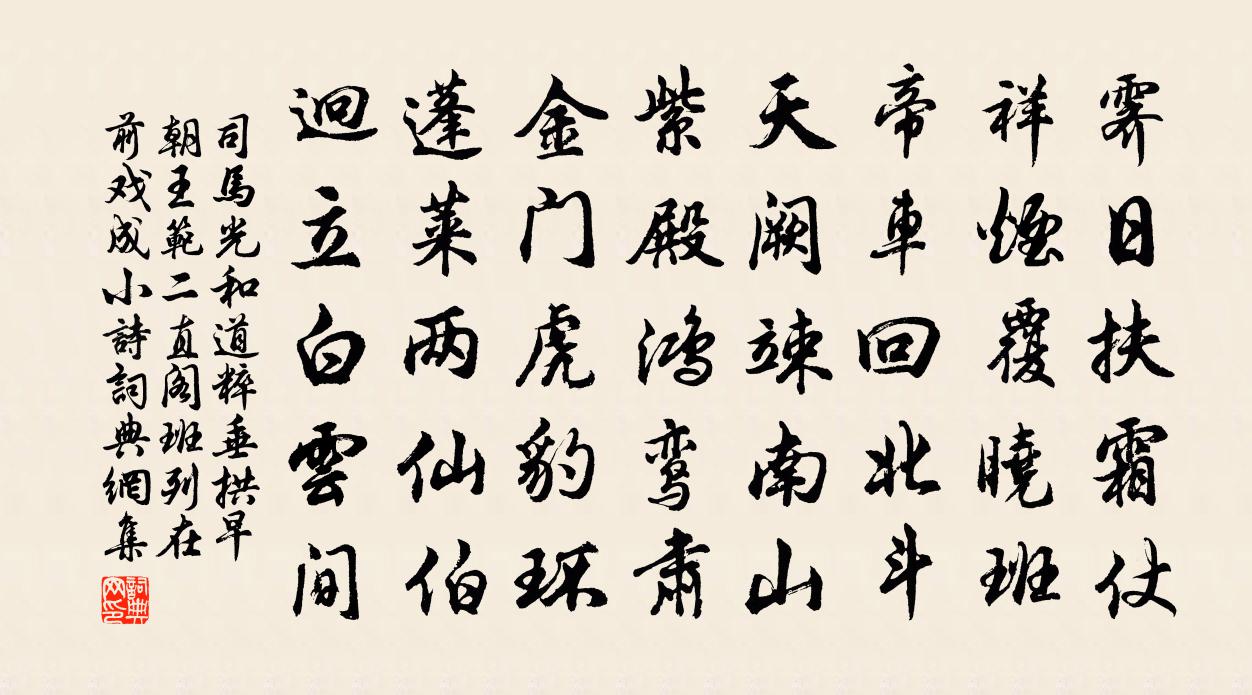 霁日扶霜仗
祥煙覆曉班
帝車回北斗
天阙竦南山
紫殿鸿鸾肃
金门虎豹环
蓬莱两仙伯
迥立白雲间
司馬光和道粹垂拱早
朝王範二直阁班列在
前戏成小詩詞典網集
詞典网印